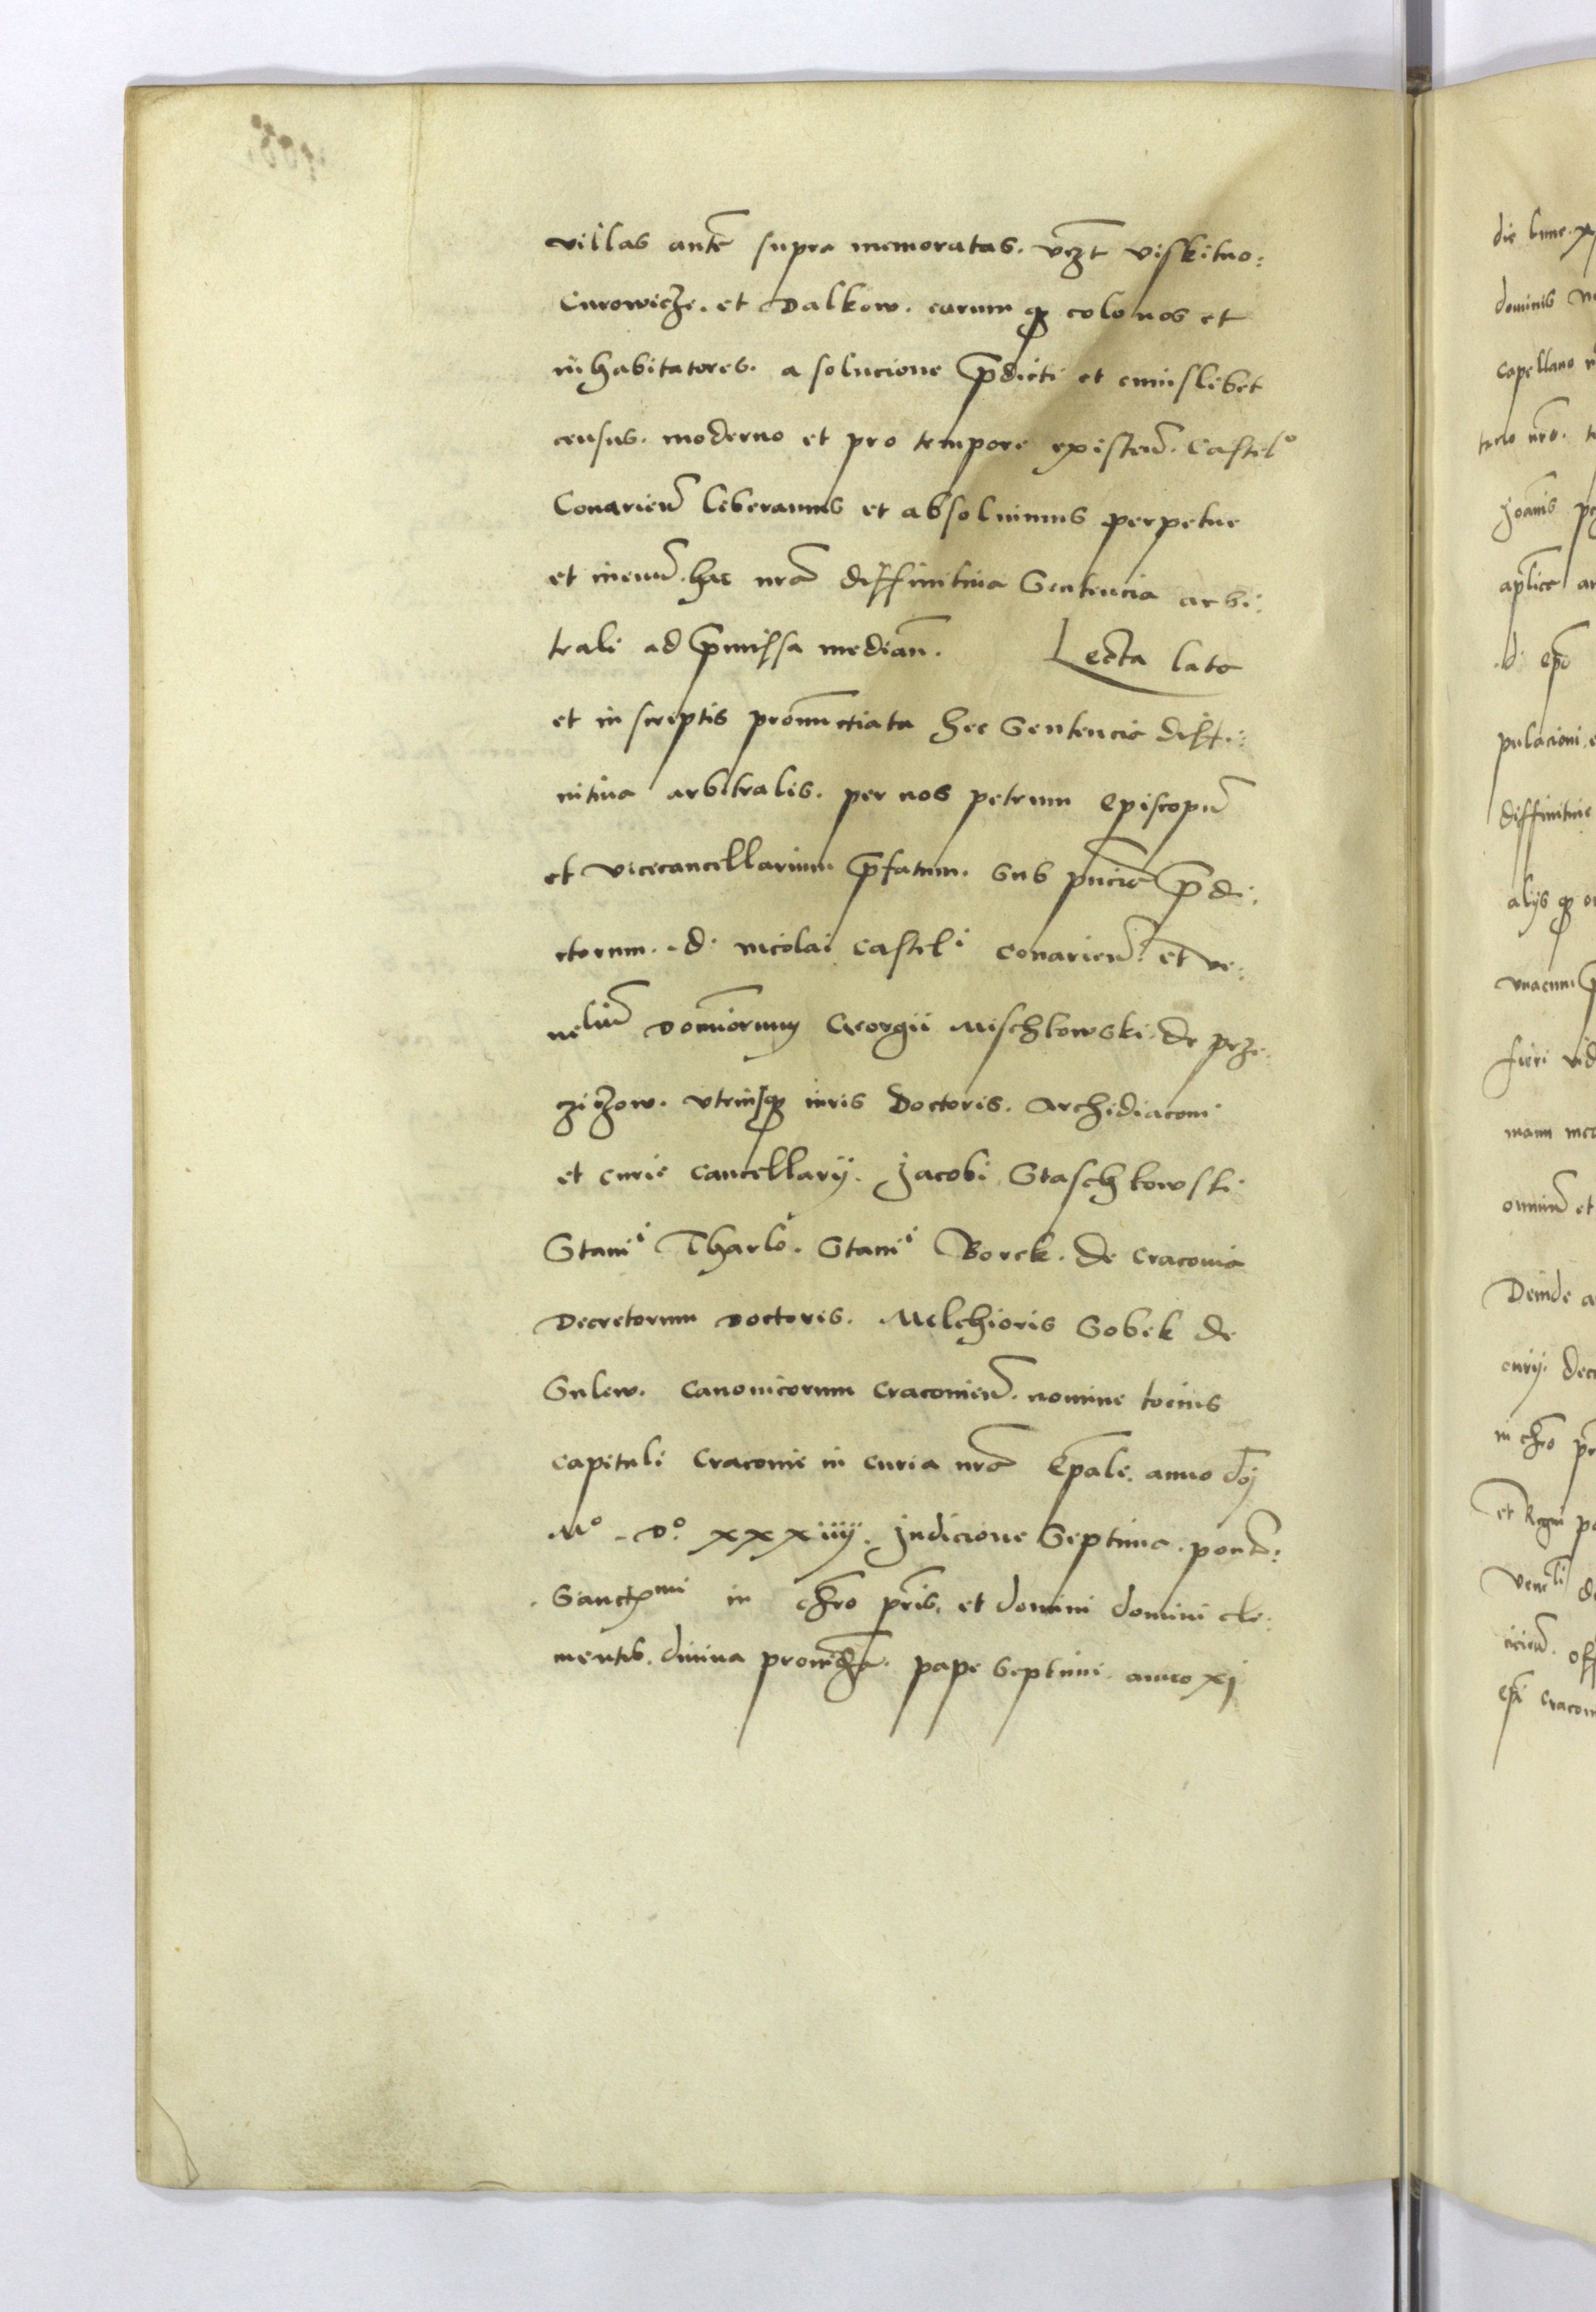 villas ante͂ supra memoratas. vꝫt visskitno:
Curowicze. et Dalkow. earum qꝫ colonos et
inhabitatores. a solucione p̄dicti et cuiuslibet
census. moderno et pro tempore existeñ. Castelº
Conarieñ liberamus et absoluimus perpetue
et ineuũ. hac nr̃a diffinitiua Sentencia arbi:
trali ad p̄missa mediañ. Lecta lata
et in scriptis pronunctiata hec Sentencia diffi:
nitiua arbitralis. per nos petrum Episcopũ
et vicecancellarium p̄fatum. Sub pñcia p̄di:
ctorum. d. nicolai Castelⁱ Conarieñ. et ve:
nebliũ Dominorum Georgii Mischkowski de prze:
cziczow. vtriusqꝫ iuris Doctoris. Archidiaconi
et curie Cancellarij. Jacobi Staschkowski
Staniⁱ Tharlo. Staniⁱ Borek. de Cracouia
Decretorum Doctoris. Melchioris Sobek de
Sulew. Canonicorum Cracouieñ. nomine tocius
Capituli Cracouie in Curia nr̃a Ep̄ali. anno dñj
Mº Dº xxxiiij. Jndicione Septima. pontũ:
Sanctᵐⁱ in chr̃o pr̃is. et domini domini cle:
mentis. diuina prouidẽa. pape Septimi. anno xj
die lune
dominis
Capellano
nr̃o.
joannis
aplice
d. Ep̄o
pulacioni
diffinitiue
alijs qꝫ
vnacum
fieri
manu
omniũ et
Deinde
in chr̃o
et Regni
Ep̄i Cracou